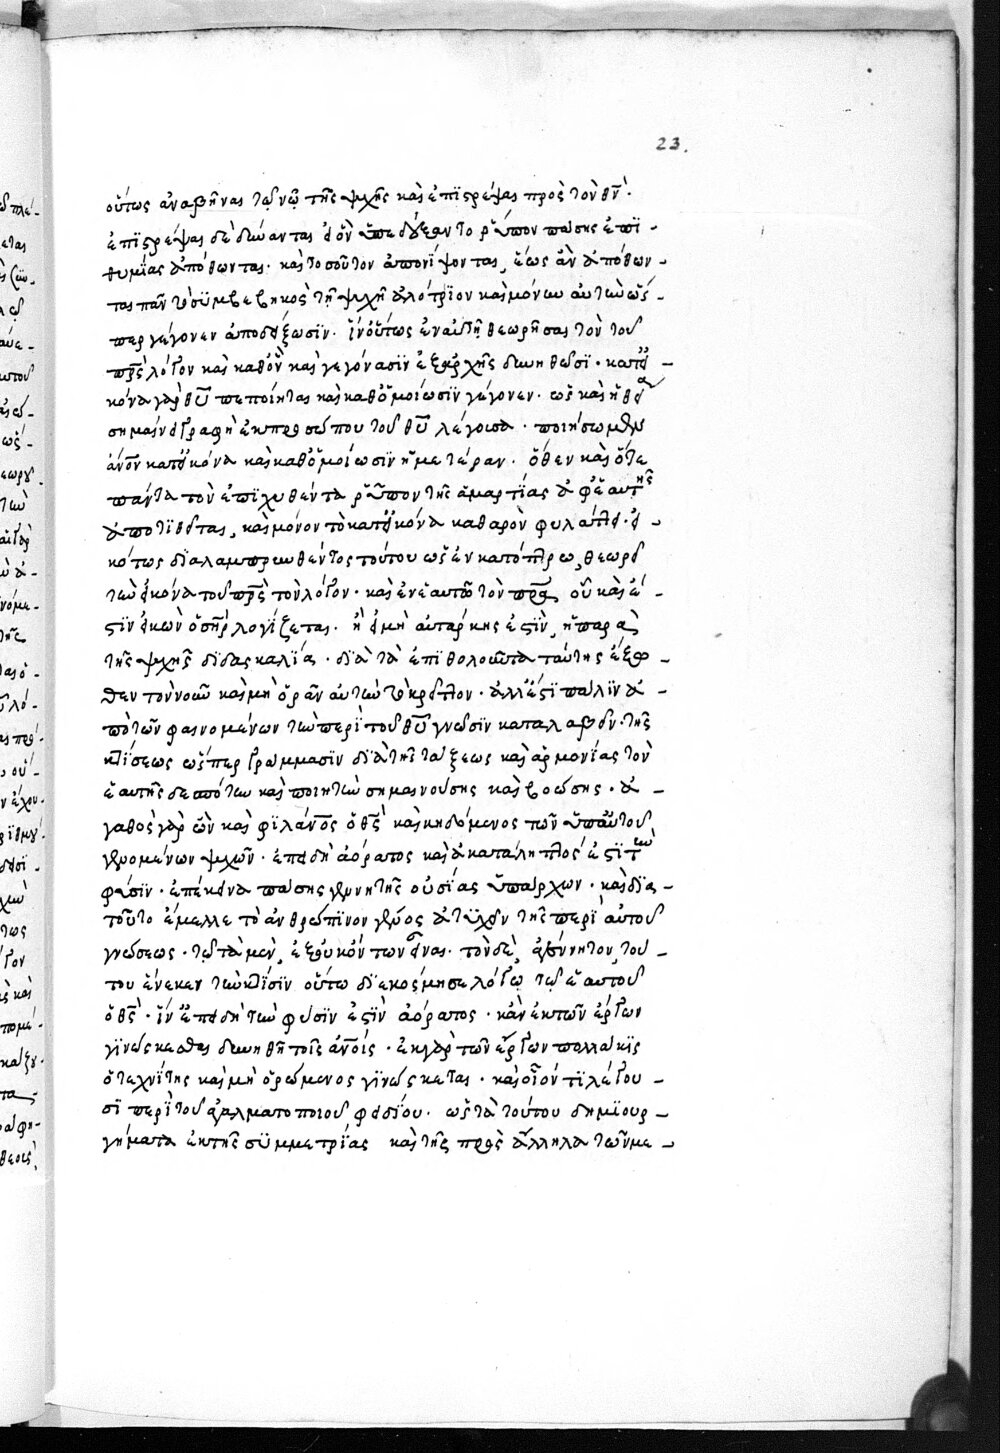 23.
οὕτως ἀναβῆναι τῷ νῷ τῆς ψυχῆς καὶ ἐπιστρέψαι πρὸς τὸν θν̄.
ἐπιστρέψαι δὲ δύνανται εἰ ὃν ὑπεδύσαντο ῥύπον πάσης ἐπι-
θυμίας ἀπόθωνται. καὶ τοσοῦτον ἀπονίψονται, ἕως ἂν ἀπόθων-
ται πᾶν τὸ συμβεβηκὸς τῇ ψυχῇ ἀλλότριον καὶ μόνην αὐτὴν ὥσ-
περ γέγονεν ἀποδείξωσιν. ἵν' οὕτως ἐν αὐτῇ θεωρῆσαι τὸν τοῦ
πρς̄ λόγον καθ' ὃν καὶ γεγόνασιν ἐξ ἀρχῆς δυνηθῶσι. κατ' εἰ-
κόνα γὰρ θῦ πεποίηται καὶ καθ' ὁμοίωσιν γέγονεν. ὡς καὶ ἡ θεία
σημαίνει γραφὴ ἐκ προσώπου τοῦ θῦ λέγουσα. ποιήσωμεν
ἄνον κατ' εἰκόνα καὶ καθ' ὁμοίωσιν ἡμετέραν. ὅθεν καὶ ὅτε
πάντα τὸν ἐπιχυθέντα ῥύπον τῆς ἁμαρτίας ἀφ' ἑαυτῆς
ἀποτίθεται, καὶ μόνον τὸ κατ' εἰκόνα καθαρὸν φυλάττει. εἰ-
κότως διαλαμπρυνθέντος τούτου ὡς ἐν κατόπτρῳ, θεωρεῖ
τὴν εἰκόνα τοῦ πρς̄ τὸν λόγον. καὶ ἐν αὐτῷ τὸν πρα οὗ καὶ ἐ-
στὶν εἰκὼν ὁ σηρ λογίζεται. ἢ εἰ μὴ αὐτάρκης ἐστὶν, ἡ παρὰ
τῆς ψυχῆς διδασκαλία. διὰ τὰ ἐπιθολοῦντα ταύτης ἔξω-
θεν τὸν νοῦν καὶ μὴ ὁρᾶν αὐτὴν τὸ κρεῖττον. ἀλλ' ἔστι πάλιν ἀ-
πὸ τῶν φαινομένων τὴν περὶ τοῦ θῦ γνῶσιν καταλαβεῖν. τῆς
κτίσεως ὥσπερ γράμμασιν διὰ τῆς τάξεως καὶ ἁρμονίας τὸν
ἑαυτῆς δεσπότην καὶ ποιητὴν σημαινούσης καὶ βοώσης. ἀ-
γαθὸς γὰρ ὢν καὶ φιλάνος ὁ θς̄ καὶ κηδόμενος τῶν ὑπ' αὐτοῦ
γενομένων ψυχῶν. ἐπειδὴ ἀόρατος καὶ ἀκατάληπτός ἐστι τὴν
φύσιν. ἐπέκεινα πάσης γενητῆς οὐσίας ὑπάρχων. καὶ διὰ
τοῦτο ἔμελλε τὸ ἀνθρώπινον γένος ἀτυχεῖν τῆς περὶ αὐτοῦ
γνώσεως. τῷ τὰ μὲν, ἐξ οὐκ ὄντων εἶναι. τὸν δὲ, ἀγένητον, τού-
του ἕνεκεν τὴν κτίσιν οὕτω διεκόσμησε λόγῳ τῷ ἑαυτοῦ
ὁ θς̄. ἵν' ἐπειδὴ τὴν φύσιν ἐστὶν ἀόρατος. κἂν ἐκ τῶν ἔργων
γινώσκεσθαι δυνηθῇ τοῖς ἀνοις. ἐκ γὰρ τῶν ἔργων πολλάκις
ὁ τεχνίτης καὶ μὴ ὁρώμενος γινώσκεται. καὶ οἷόν τι λέγου-
σι περὶ τοῦ ἀγαλματοποιοῦ φειδίου. ὡς τὰ τούτου δημιουρ-
γήματα ἐκ τῆς συμμετρίας καὶ τῆς πρὸς ἄλληλα τῶν με-